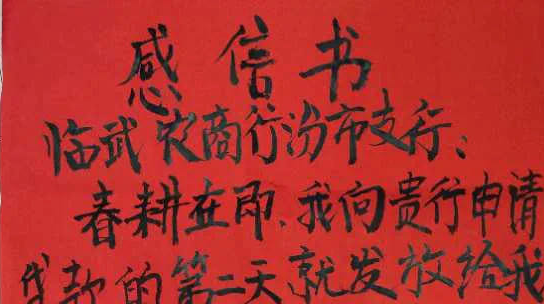 感信书
临武农商行汾市支行：
春耕在即、我向贵行申请
贷款的第二天就发放给我